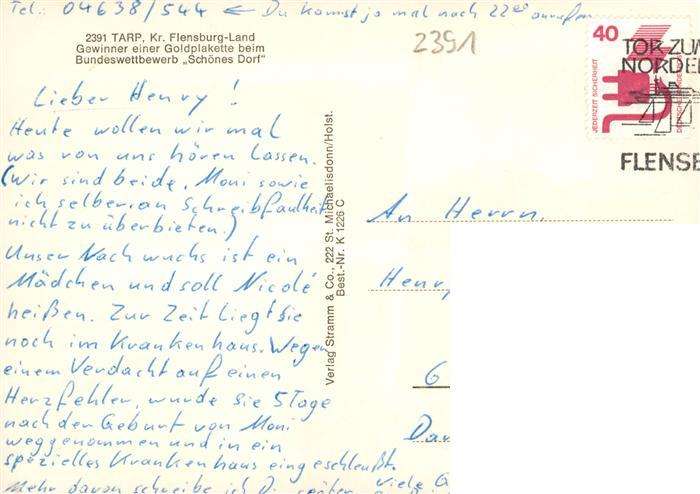 Tel: 04638/544 ← Du kannst ja mal nach 22°° anrufen
2391 TARP, Kr. Flensburg-Land
Gewinner einer Goldplakette beim
Bundeswettbewerb „Schönes Dorf"
2391
40
JEDERZEIT SICHERHEIT
TOR ZUM
NORDEN
FLENSB
Lieber Henry!
Heute wollen wir mal
was von uns hören lassen.
(Wir sind beide, Moni sowie
ich selber an Schreibfaulheit
nicht zu überbieten.)
Unser Nachwuchs ist ein
Mädchen und soll Nicolé
heißen. Zur Zeit liegt sie
noch im Krankenhaus. Wegen
einem Verdacht auf einen
Herzfehler, wurde sie 5 Tage
nach der Geburt von Moni
weggenommen und in ein
spezielles Krankenhaus
Mehr davon schreibe ich Di später viele G
Verlag Stramm & Co., 222 St. Michaelisdonn/Holst.
Best.-Nr. K 1226 C
An Herrn
Henry
6
Da